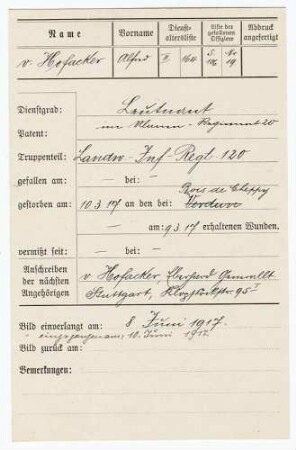 Name Vorname Dienst-altersliste Liste der gefallenen Offiziere Abdruck angefertigt
v. Hofacker Alfred II 164 S. 106 No 19
Dienstgrad: Leutnant
Patent: im Ulanen-Regiment 20
Truppenteil: Landw-Inf-Regt. 120
gefallen am: — bei: — Bois de Cheppy
gestorben am 10.3.17 an den bei: Verdun
— am: 9.3.17 erhaltenen Wunden.
vermißt seit: — bei: —
Anschreiben v. Hofacker, Eberhard
der nächsten Stuttgart, 95 I
Angehörigen
Bild einverlangt am: 8. Juni 1917.
eingegangen am, 10. Juni 1917
Bild zurück am:
Bemerkungen: